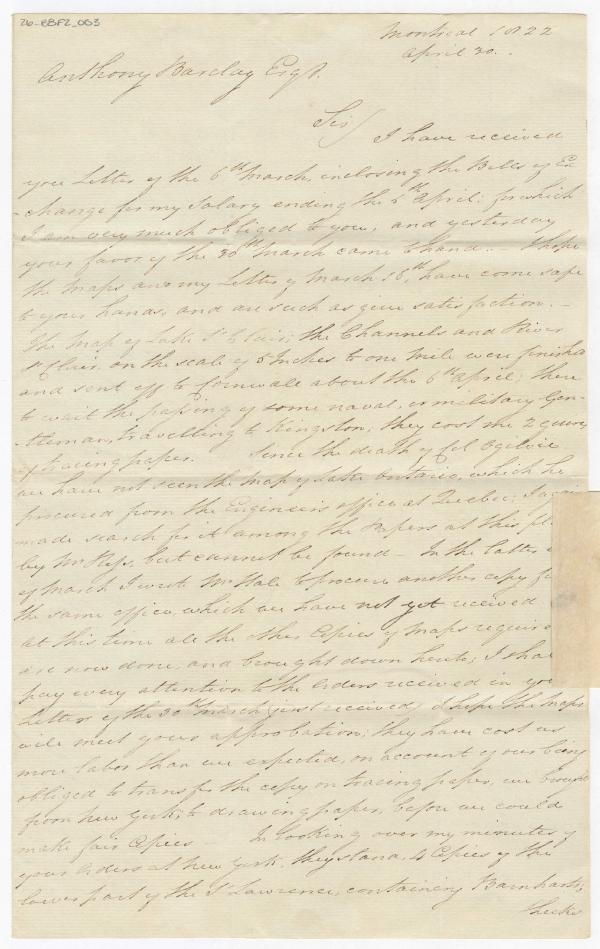 26-BBF2_003
Montreal 1822
April 20.
Anthony Barclay Esqr.
Sir/
I have received
your Letter of the 6th March, inclosing the Bills of Ex
-change for my Salary ending the 6th April: for which
I am very much obliged to you, and yesterday
your favor of the 30th March came to hand. - I hope
the maps and my Letter of March 18th, have come safe
to your hands, and are such as give satisfaction. -
The map of Lake St Clair; the Channels and River
St Clair, on the scale of 5 Inches to one mile were finished
and sent off to Cornwall about the 6th April; there
to wait the passing of some naval, or military Gen-
-tleman, travelling to Kingston; they cost me 2 quires
of tracing paper. Since the death of Col Ogilvie
we have not seen the map of Lake Ontario, which he
procured from the Engineers office at Quebec; I again
made search for it among the Papers at this
by Mr Hepss, but cannot be found - In the latter
of March I wrote Mr Hale to procure another copy
the same office, which we have not yet received
at this time all the other Copies of maps
are now done, and brought down here; I
pay every attention to the orders received in
Letter of the 30th March (just received) I hope the maps
will meet your approbation; they have cost us
more labor than we expected, on account of our being
obliged to transfer the copy on tracing paper, we brought
from New York, to drawing paper, before we could
make fair Copies - In looking over my minutes of
your orders at New York, they stand, 4 Copies of the
lower part of the St Lawrence, containing Barnharts,
Sheeks